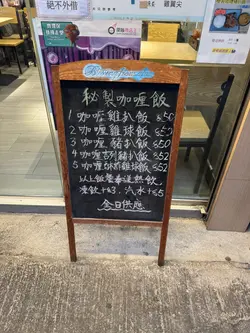 絕不外借
雞翼尖
秘製咖喱飯
1 咖喱雞扒飯 $50
2 咖喱雞球飯 $50
3 咖喱豬扒飯 $50
4 咖喱吉列豬扒飯 $52
5 咖喱吉列雞扒飯 $52
以上飯餐奉送熱飲,
凍飲+$3, 汽水+$5
全日供應